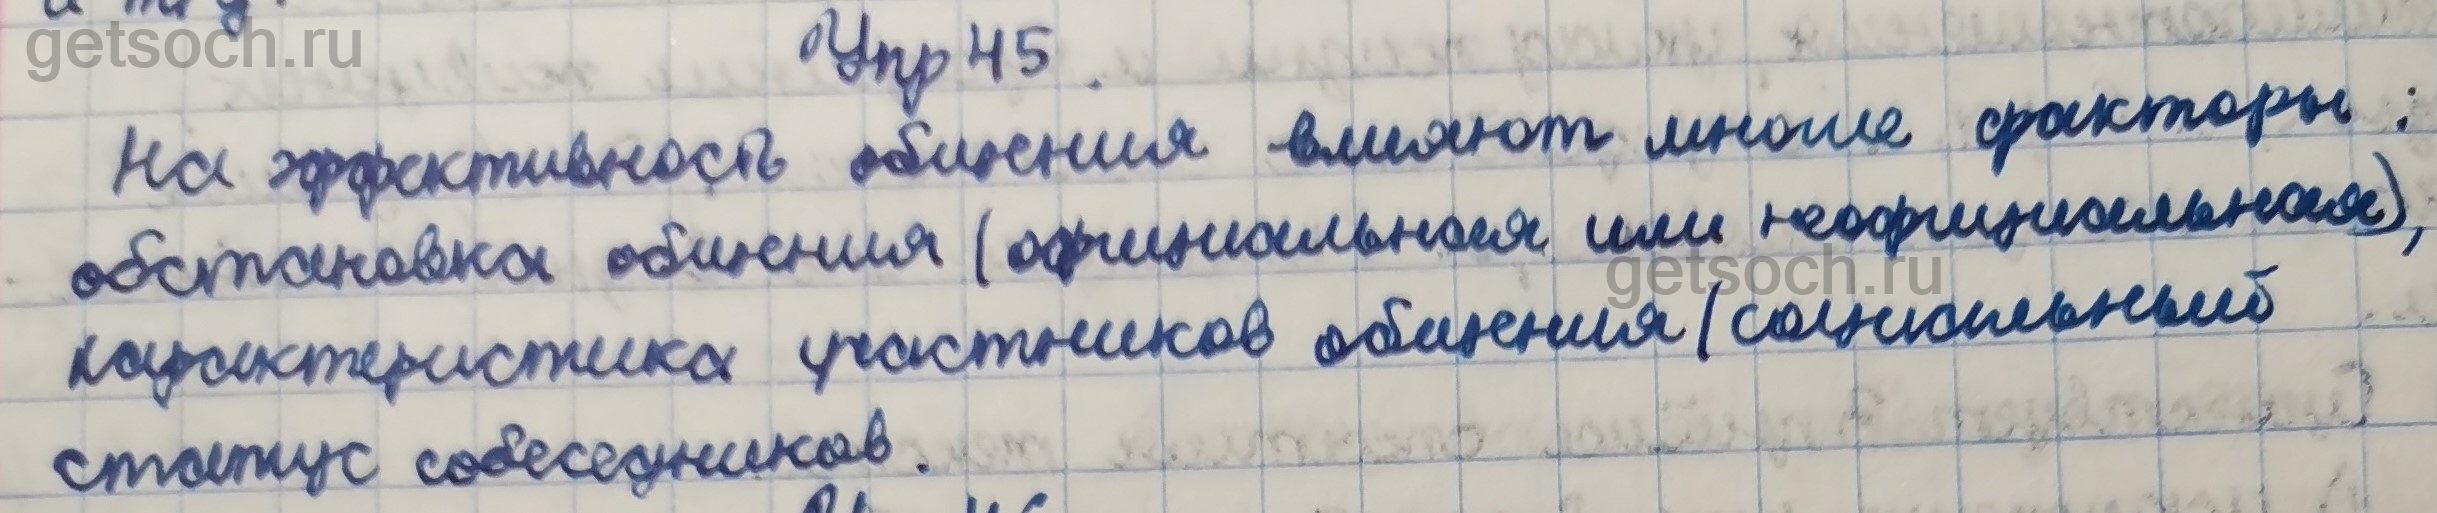 getsoch.ru
Упр 45.
На эффективность общения влияют многие факторы:
обстановка общения (официальная или неофициальная),
getsoch.ru
характеристика участников общения (социальный
статус собеседников.